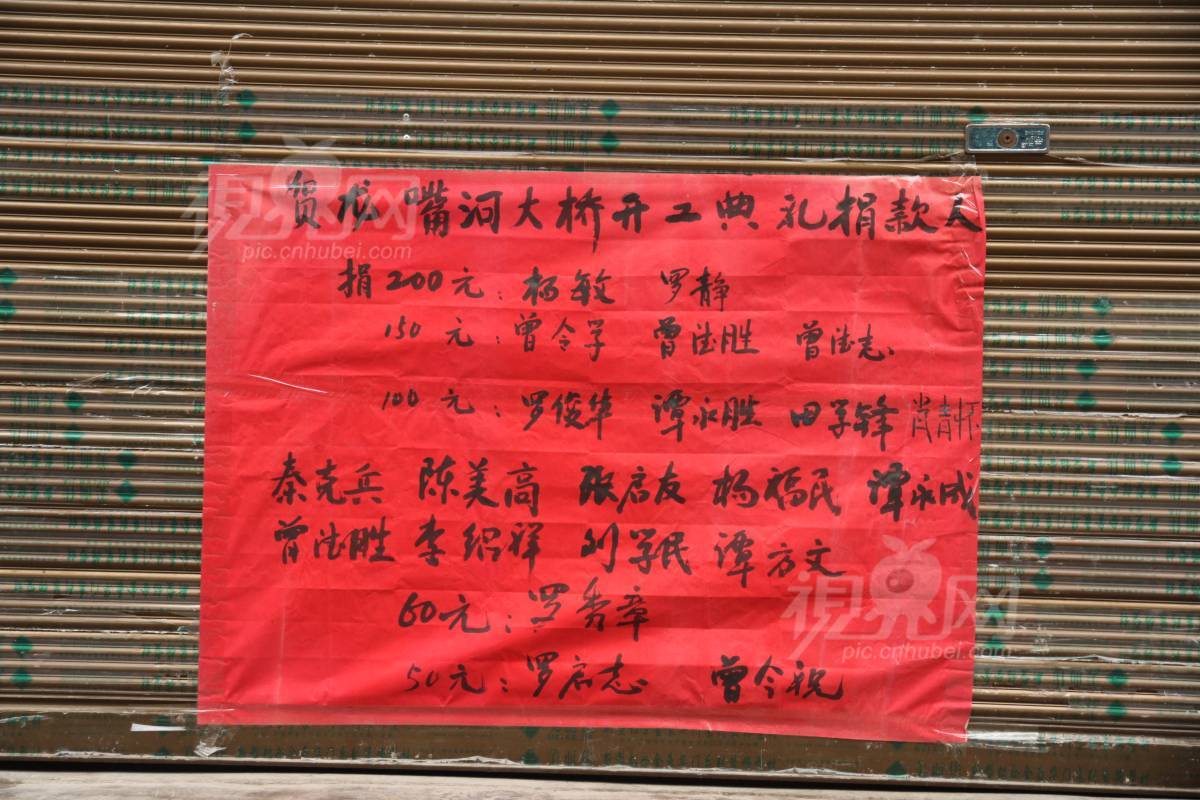 贺龙嘴河大桥开工典礼捐款人
捐200元：杨敏 罗静
150元：曾令学 曾德胜 曾德志
100元：罗俊华 谭永胜 田学锋 肖青怀
秦克兵 陈美高 张启友 杨福民 谭永成
曾德胜 李绍祥 刘学民 谭方文
60元：罗秀章
50元：罗启志 曾令祝
視界网
pic.cnhubei.com
視界网
pic.cnhubei.com